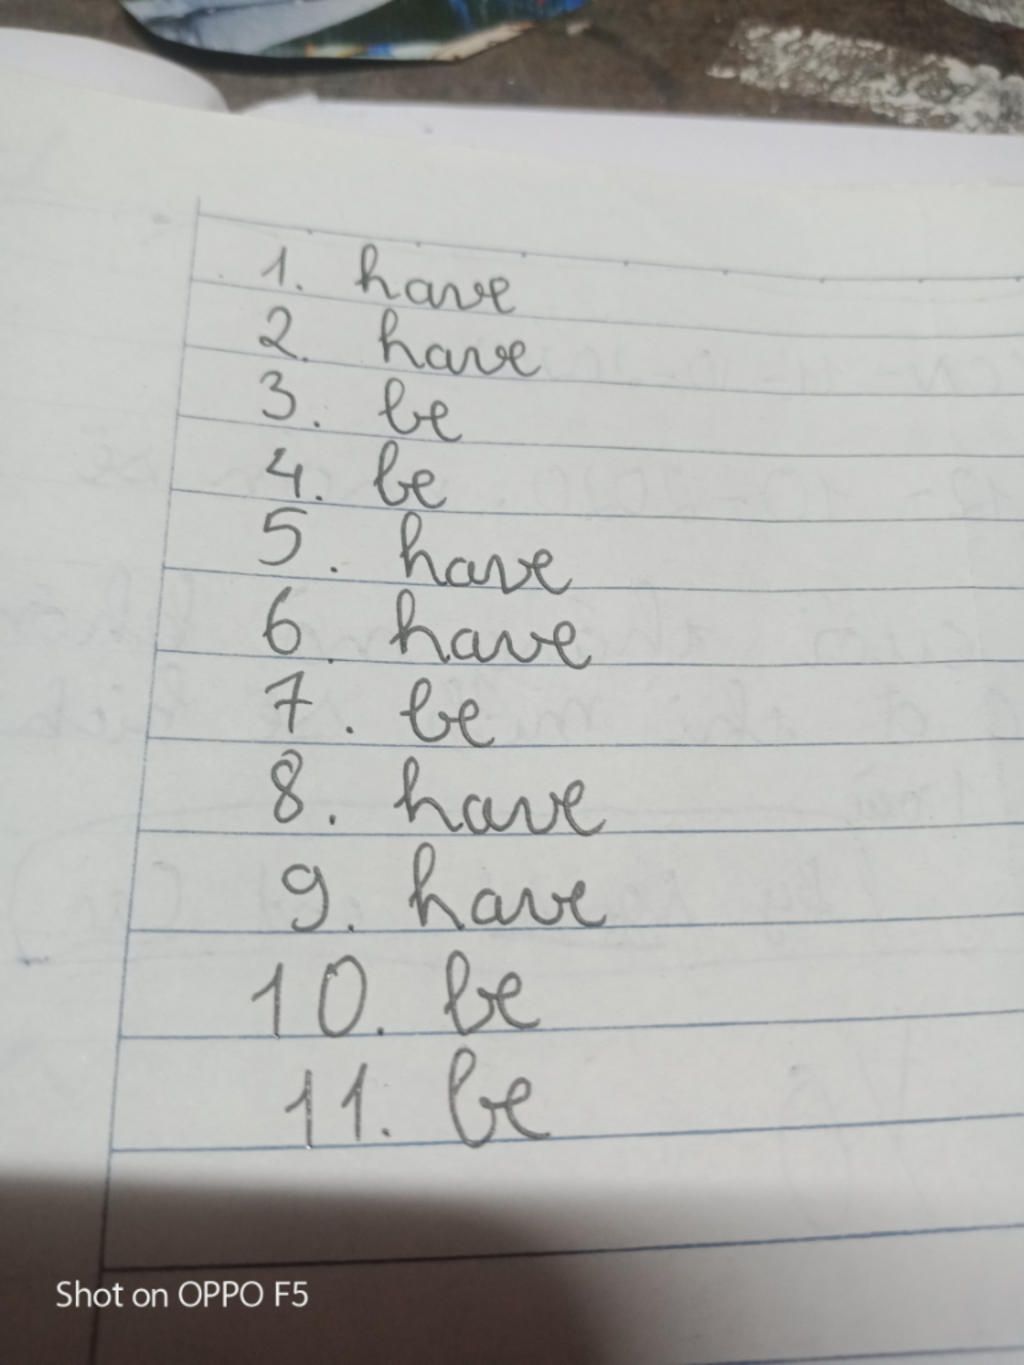 1. have
2. have
3. be
4. be
5. have
6. have
7. be
8. have
9. have
10. be
11. be
Shot on OPPO F5